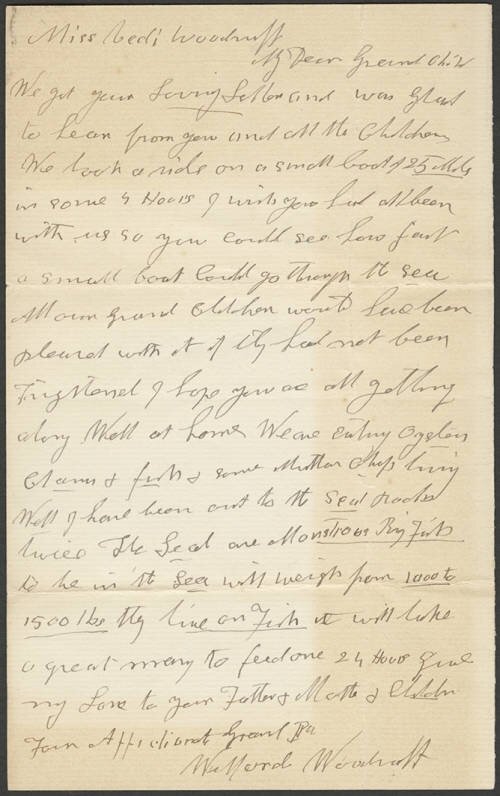 Miss Woodruff
My Dear Grand Child
We got your Loving Letter and was Glad
to hear from you and all the Children
We took a ride on a small boat of 25 Miles
in some 4 Hours I wish you had all been
with us so you could see how fast
a small boat Could go through the sea
All our Grand Children would have been
pleased with it if they had not been
Frightened I hope you are all getting
along Well at home We are Eating Oysters
Clams & fish & some Mutton Chops living
Well I have been out to the Seal rocks
twice The Seal are Monstrous Big Fish
to be in the Sea will weigh from 1000 to
1500 lbs they live on Fish it will take
a great many to feed one 24 Hours Give
my Love to your Father & Mother & Children
Your Affectionate Grand Pa
Wilford Woodruff